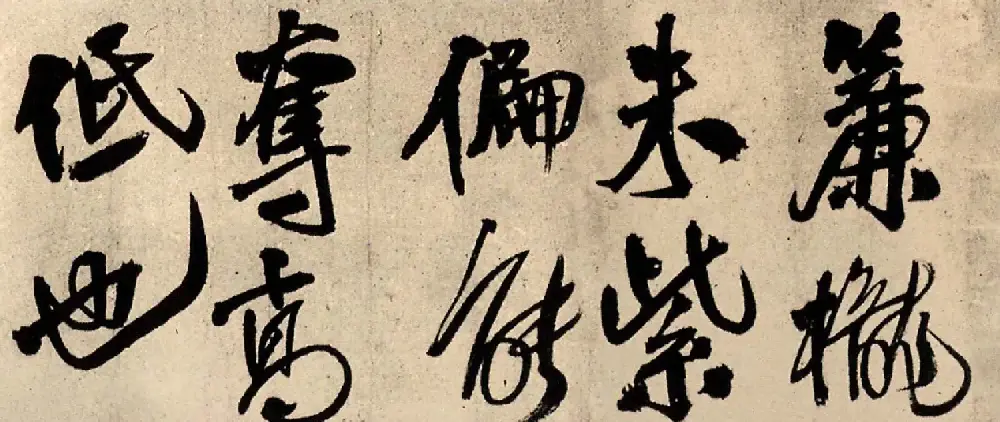 簾櫳
朱紫
偏能
奪高
低也